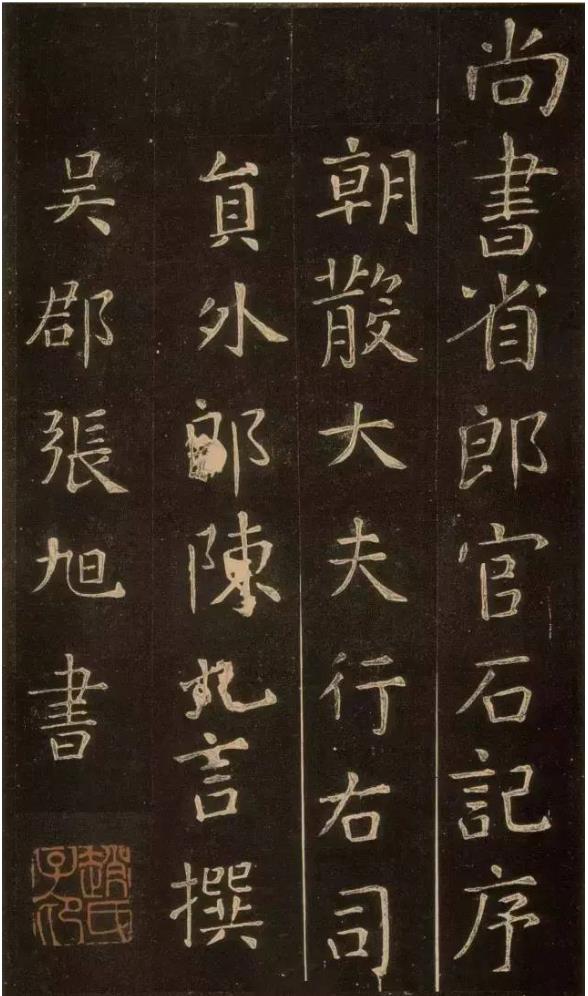 尚書省郎官石記序
朝散大夫行右司
員外郎陳九言撰
吳郡張旭書
趙氏子印